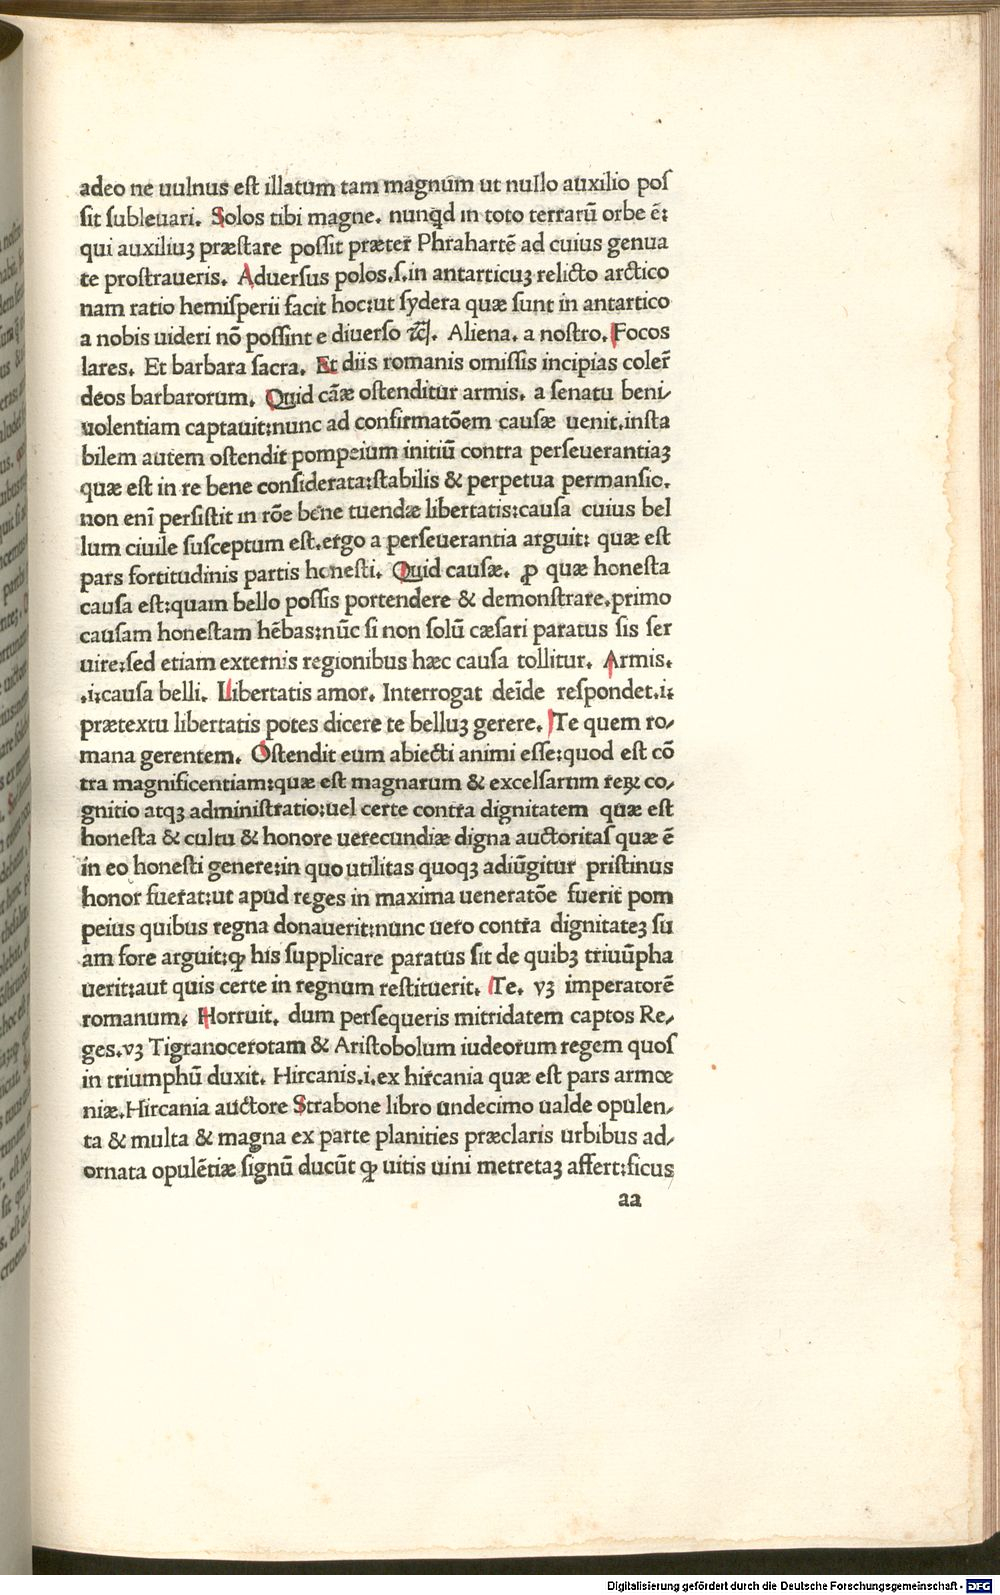 adeo ne uulnus est illatum tam magnum ut nullo auxilio pos
sit subleuari. Solos tibi magne. nunqd in toto terrarū orbe ē:
qui auxiliuꝫ præstare possit præter Phrahartē ad cuius genua
te prostraueris. Aduersus polos.s.in antarticuꝫ relicto arctico
nam ratio hemisperii facit hoc:ut sydera quæ sunt in antartico
a nobis uideri nō possint e diuerso &c. Aliena. a nostro. Focos
lares. Et barbara sacra. Et diis romanis omissis incipias coler̄
deos barbarorum. Quid cāæ ostenditur armis. a senatu beni/
uolentiam captauit:nunc ad confirmatōem causæ uenit.insta
bilem autem ostendit pompeium initiū contra perseuerantiaꝫ
quæ est in re bene considerata:stabilis & perpetua permansio.
non enī persistit in rōe bene tuendæ libertatis:causa cuius bel
lum ciuile susceptum est.ergo a perseuerantia arguit: quæ est
pars fortitudinis partis honesti. Quid causæ. ꝓ quæ honesta
causa est:quam bello possis portendere & demonstrare.primo
causam honestam hēbas:nūc si non solū cæsari paratus sis ser
uire:sed etiam externis regionibus hæc causa tollitur. Armis.
.i:causa belli. Libertatis amor. Interrogat deīde respondet.i:
prætextu libertatis potes dicere te belluꝫ gerere. Te quem ro/
mana gerentem. Ostendit eum abiecti animi esse:quod est cō
tra magnificentiam:quæ est magnarum & excelsarum reꝝ co/
gnitio atqꝫ administratio:uel certe contra dignitatem quæ est
honesta & cultu & honore uerecundiæ digna auctoritas quæ ē
in eo honesti genere:in quo utilitas quoqꝫ adiūgitur pristinus
honor fuerat:ut apud reges in maxima ueneratōe fuerit pom
peius quibus regna donauerit:nunc uero contra dignitateꝫ su
am fore arguit:ꝙ his supplicare paratus sit de quibꝫ triuūpha
uerit:aut quis certe in regnum restituerit. Te. vꝫ imperatorē
romanum: Horruit. dum persequeris mitridatem captos Re/
ges.vꝫ Tigranocerotam & Aristobolum iudeorum regem quos
in triumphū duxit. Hircanis.i.ex hircania quæ est pars armœ
niæ.Hircania auctore Strabone libro undecimo ualde opulen/
ta & multa & magna ex parte planities præclaris urbibus ad/
ornata opulētiæ signū ducūt ꝙ uitis uini metretaꝫ affert:ficus
aa
Digitalisierung gefördert durch die Deutsche Forschungsgemeinschaft - DFG